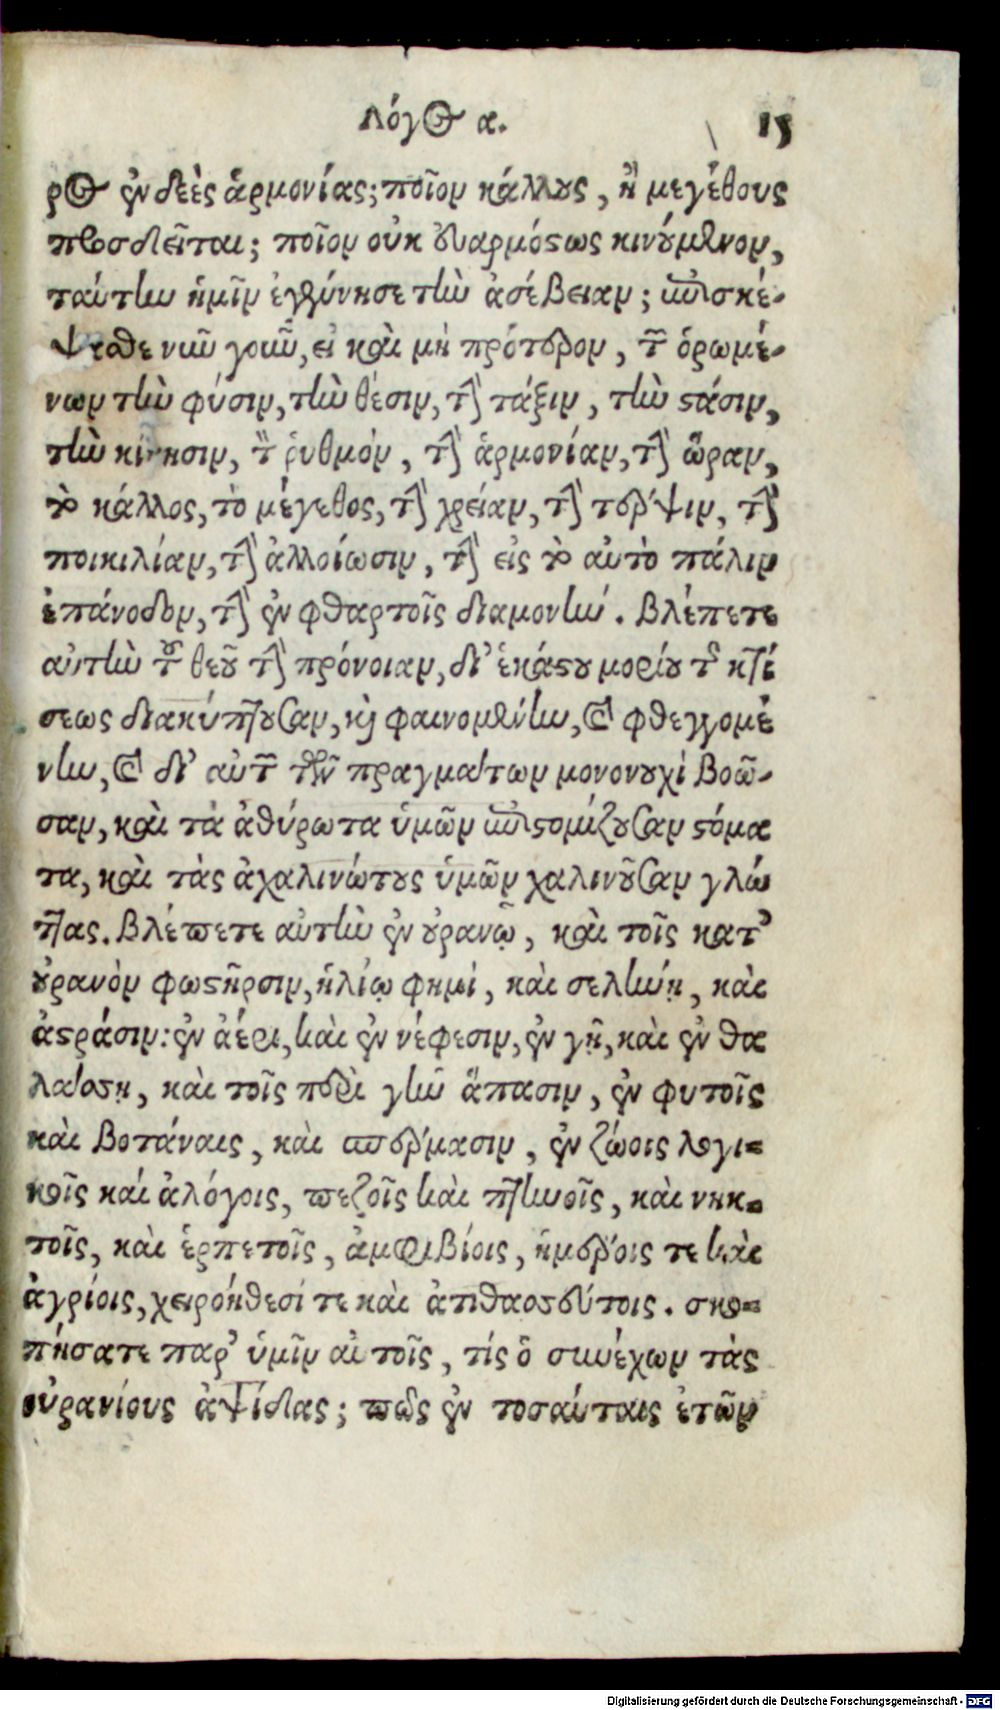 Λόγος α. 15
ρος ἐνδεὲς ἁρμονίας; ποῖον κάλλους, ἢ μεγέθους
προσδεῖται; ποῖον οὐκ εὐαρμόστως κινούμενον,
ταύτην ἡμῖν ἐγέννησε τὴν ἀσέβειαν; ἐπισκέ-
ψασθε νῦν γοῦν, εἰ καὶ μὴ πρότερον, τῶν ὁρωμέ-
νων τὴν φύσιν, τὴν θέσιν, τὴν τάξιν, τὴν στάσιν,
τὴν κίνησιν, τὸν ῥυθμὸν, τὴν ἁρμονίαν, τὴν ὥραν,
τὸ κάλλος, τὸ μέγεθος, τὴν χρείαν, τὴν τέρψιν, τὴν
ποικιλίαν, τὴν ἀλλοίωσιν, τὴν εἰς τὸ αὐτὸ πάλιν
ἐπάνοδον, τὴν ἐν φθαρτοῖς διαμονήν. Βλέπετε
αὐτὴν τοῦ θεοῦ τὴν πρόνοιαν, δι' ἑκάστου μορίου τῆς κτί
σεως διακύπτουσαν, καὶ φαινομένην, καὶ φθεγγομέ
νην, καὶ δι' αὐτῶν τῶν πραγμάτων μονονουχὶ βοῶ-
σαν, καὶ τὰ ἀθύρωτα ὑμῶν ἐπιστομίζουσαν στόμα
τα, καὶ τὰς ἀχαλινώτους ὑμῶν χαλινοῦσαν γλώ
ττας. Βλέπετε αὐτὴν ἐν οὐρανῷ, καὶ τοῖς κατ'
οὐρανὸν φωστῆρσιν, ἡλίῳ φημὶ, καὶ σελήνῃ, καὶ
ἀστράσιν: ἐν ἀέρι, καὶ ἐν νέφεσιν, ἐν γῇ, καὶ ἐν θα
λάσσῃ, καὶ τοῖς περὶ γῆν ἅπασιν, ἐν φυτοῖς
καὶ βοτάναις, καὶ σπέρμασιν, ἐν ζώοις λογι-
κοῖς καὶ ἀλόγοις, πεζοῖς καὶ πτηνοῖς, καὶ νηκ-
τοῖς, καὶ ἑρπετοῖς, ἀμφιβίοις, ἡμέροις τε καὶ
ἀγρίοις, χειροήθεσί τε καὶ ἀτιθασσεύτοις. σκο-
πήσατε παρ' ὑμῖν αὐτοῖς, τίς ὁ συνέχων τὰς
οὐρανίους ἁψίδας; πῶς ἐν τοσαύταις ἐτῶν
Digitalisierung gefördert durch die Deutsche Forschungsgemeinschaft - DFG